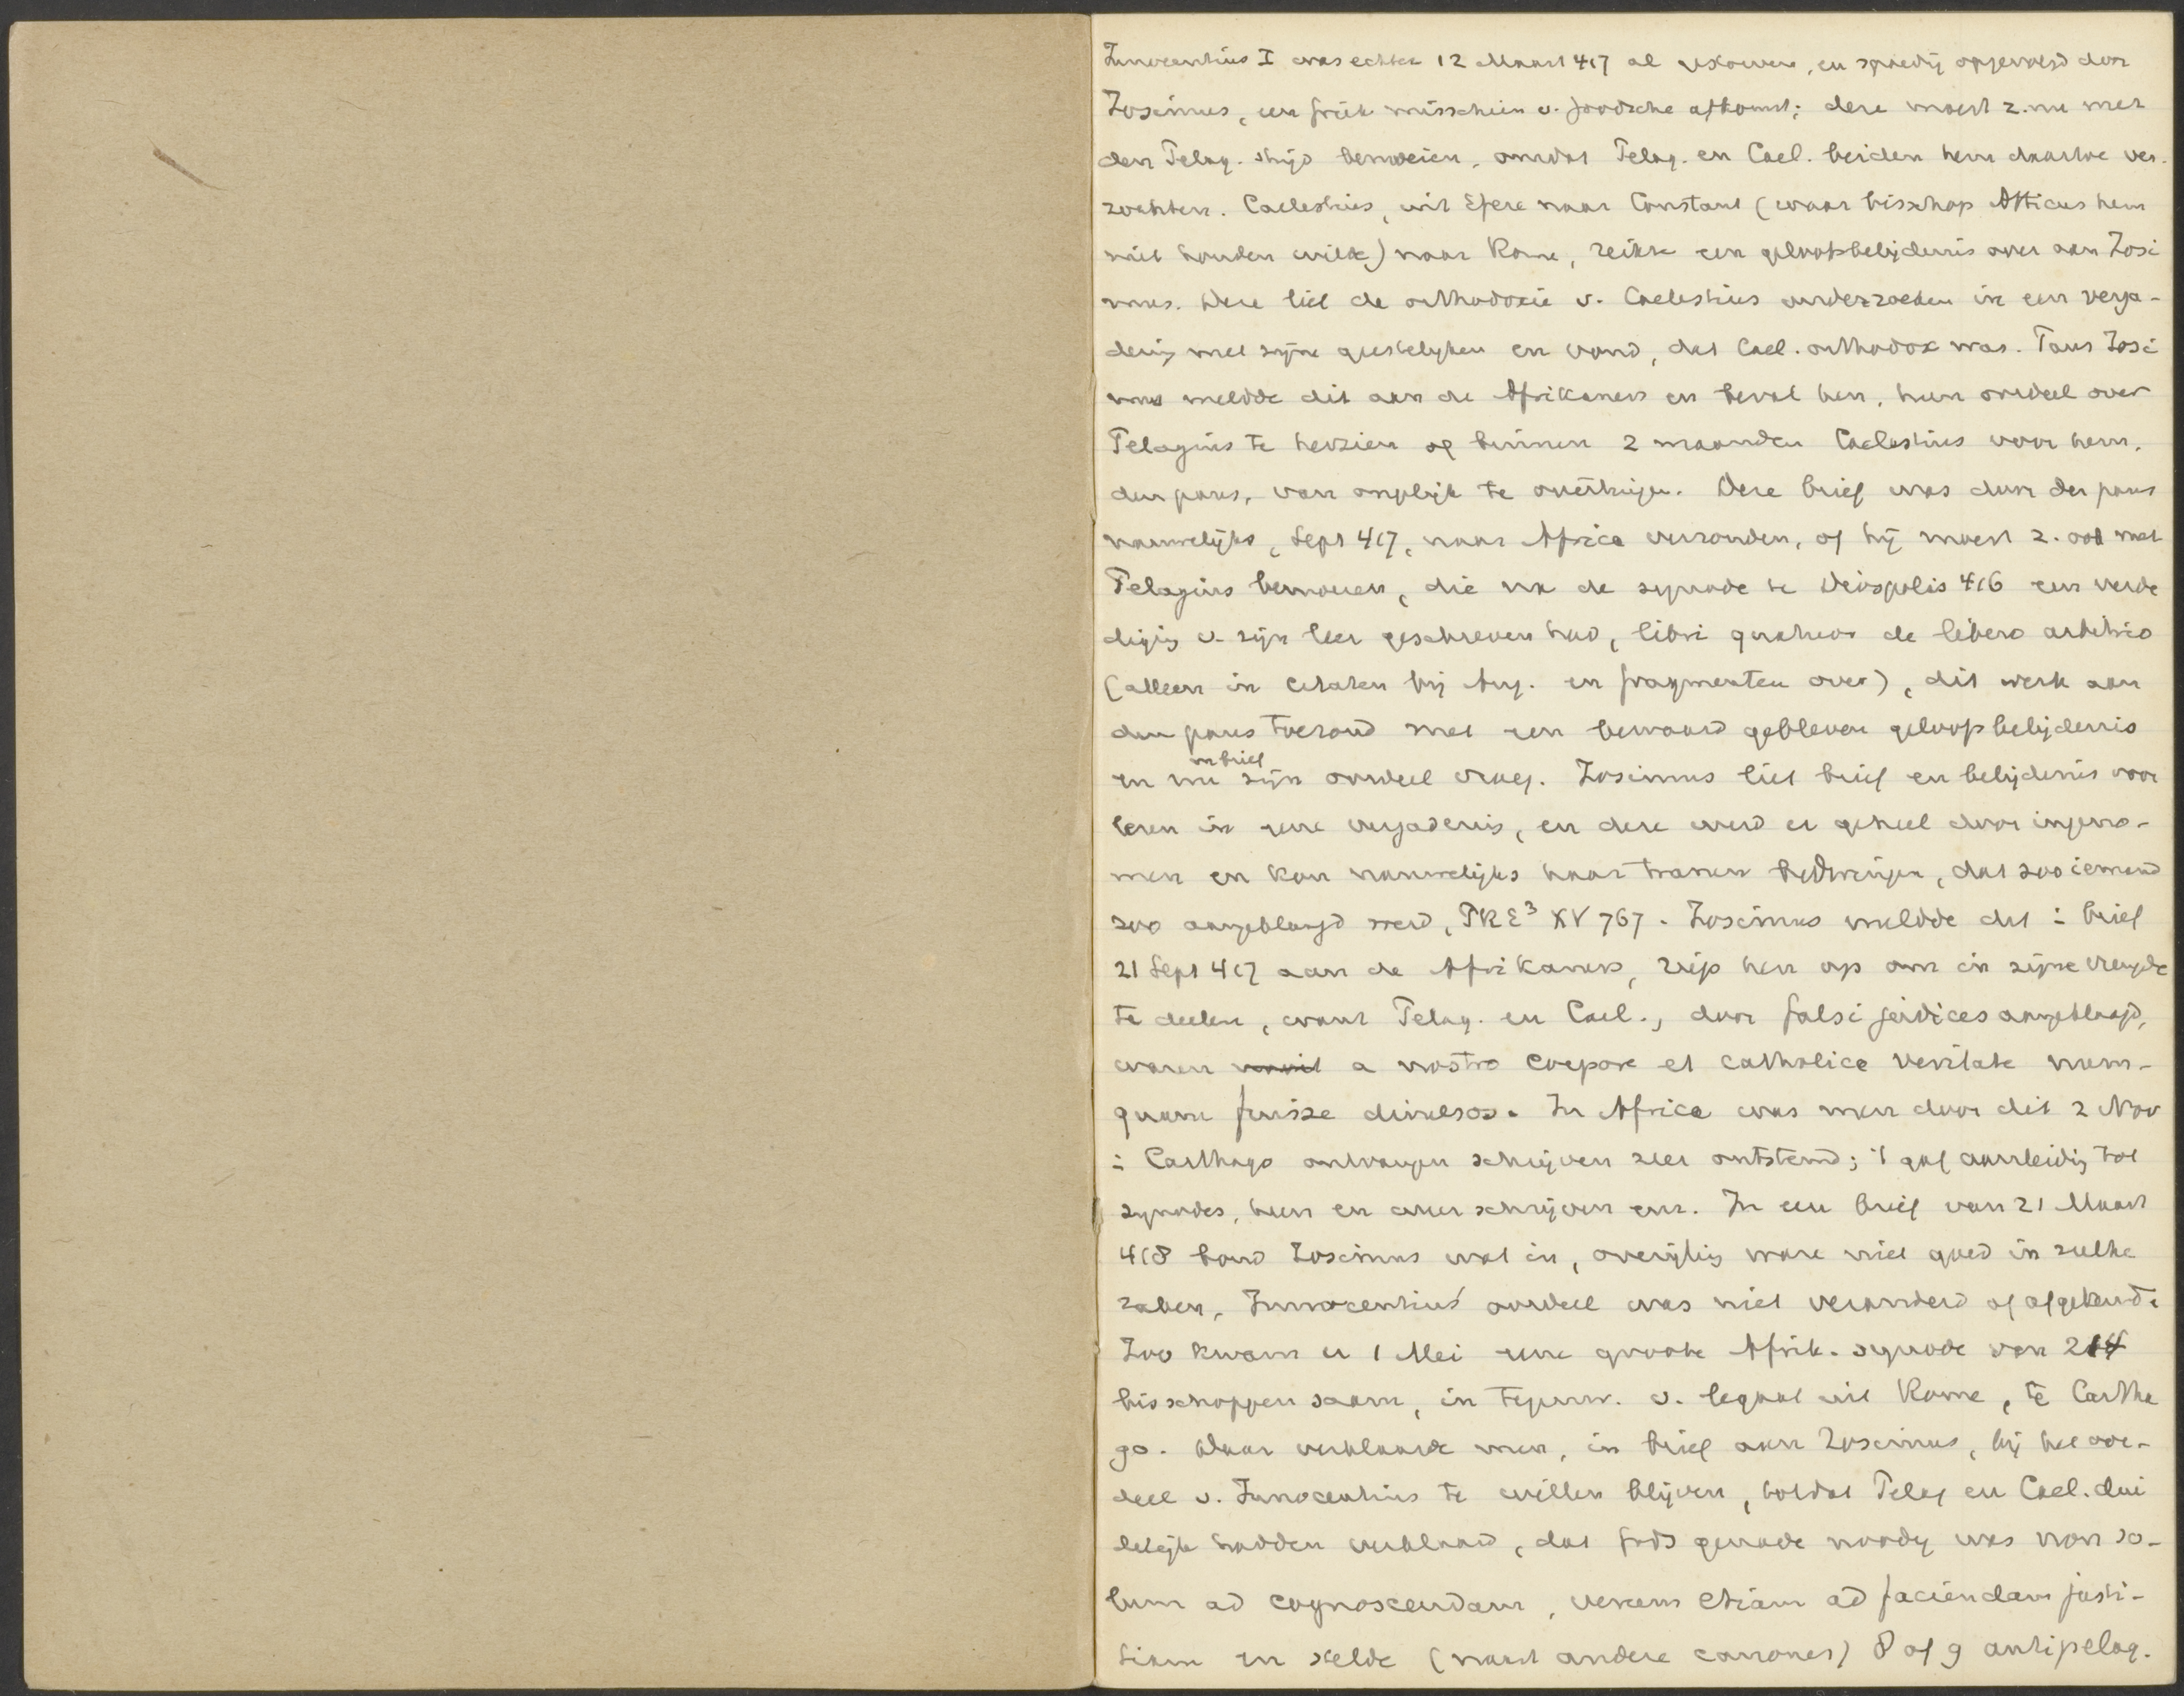 Innocentius I was echter 12 Maart 417 al gestorven, en spoedig opgevolgd door
Zosimus, een Griek misschien v. Joodsche afkomst; deze moest z. nu met
den Pelag. strijd bemoeien, omdat Pelag. en Cael. beiden hem daartoe ver-
zochten. Caelestius, uit Efeze naar Constant (waar bisschop Atticus hem
niet houden wilde) naar Rome, reikte een geloofsbelijdenis over aan Zosi
mus. Deze liet de orthodoxie v. Caelestius onderzoeken in een verga-
dering met zijne geestelyken en vond, dat Cael. orthodox was. Paus Zosi
mus meldde dit aan de Afrikaners en beval hen, hun oordeel over
Pelagius te herzien of binnen 2 maanden Caelestius voor hem,
den paus, van ongelijk te overtuigen. Deze brief was door den paus
nauwelijks, Sept 417, naar Africa verzonden, of hij moest z. ook met
Pelagius bemoeien, die na de synode te Diospolis 416 een verde
diging v. zijn leer geschreven had, libri quatuor de libero arbitrio
(alleen in citaten bij Aug. en fragmenten over), dit werk aan
den paus toezond met een bewaard gebleven geloofsbelijdenis
en brief
en nu zijn oordeel vroeg. Zosimus liet brief en belijdenis voor
lezen in eene vergadering, en deze werd er geheel door ingeno-
men en kon nauwelijks haar tranen bedwingen, dat zoo iemand
zoo aangeklaagd werd, PRE³ XV 767. Zosimus meldde dit i brief
21 Sept 417 aan de Afrikaners, riep hen op om in zijne vreugde
te deelen, want Pelag. en Cael., door falsi judices aangeklaagd,
waren a nostro corpore et catholica veritate num-
quam fuisse divulsos. In Africa was men door dit 2 Nov
i Carthago ontvangen schrijven zeer ontstemd; 't gaf aanleiding tot
synodes, heen en weer schrijven enz. In een brief van 21 Maart
418 bond Zosimus wat in, overijling ware niet goed in zulke
zaken, Innocentius' oordeel was niet veranderd of afgekeurd.
Zoo kwam er 1 Mei eene groote Afrik. synode van 214
bisschoppen saam, in tegenw. v. legaat uit Rome, te Cartha
go. Daar verklaarde men, in brief aan Zosimus, bij het oor-
deel v. Innocentius te willen blijven, totdat Pelag en Cael. dui
delijk hadden verklaard, dat Gods genade noodig was non so-
lum ad cognoscendam, verum etiam ad faciendam justi-
tiam en stelde (naast andere canones) 8 of 9 antipelag.